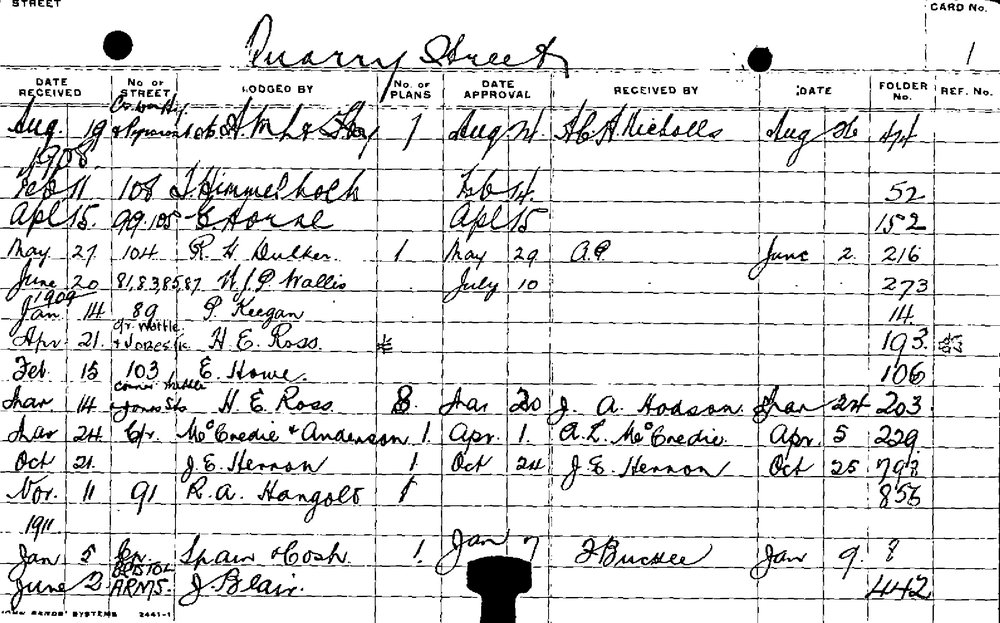 STREET
CARD No.
Quarry Street 1
DATE RECEIVED No. or STREET LODGED BY No. of PLANS DATE APPROVAL RECEIVED BY DATE FOLDER No. REF. No.
Aug. 19 1 Aug. 24. A C A Nicholls Aug 26 424
1908
Feb 11 108 J. Himmelhoch Feb 14. 52
Apl 15. 99.105 E. Horne Apl 15 152
May 27 104 R. H. Dulker. 1 May 29 A.P. June 2. 216
June 20 81,83,85,87 W J. P. Wallis July 10 273
1909
Jan 14 89 P. Keegan 14
Cr. Wattle
Apr 21. & Jones St. H. E. Ross. 193
Feb. 15 103 E. Howe. 106
corner Wattle
Mar 14 & Jones Sts H. E. Ross 8. Mar 20 J. A. Hodson. Mar 24 203
Mar 24 Cr. McCredie & Anderson 1. Apr. 1. A. L. McCredie. Apr. 5 229
Oct 21. J. E. Hernon 1. Oct 24 J. E. Hernon Oct 25 798
Nov. 11 91 R. A. Hangolt 1 856
1911
Jan 5 Cr. Spain & Cosh. 1. Jan 7 F Buckee Jan 9. 8
June 2. BRISTOL ARMS. J. Blair. 442
SYSTEMS 2441-1